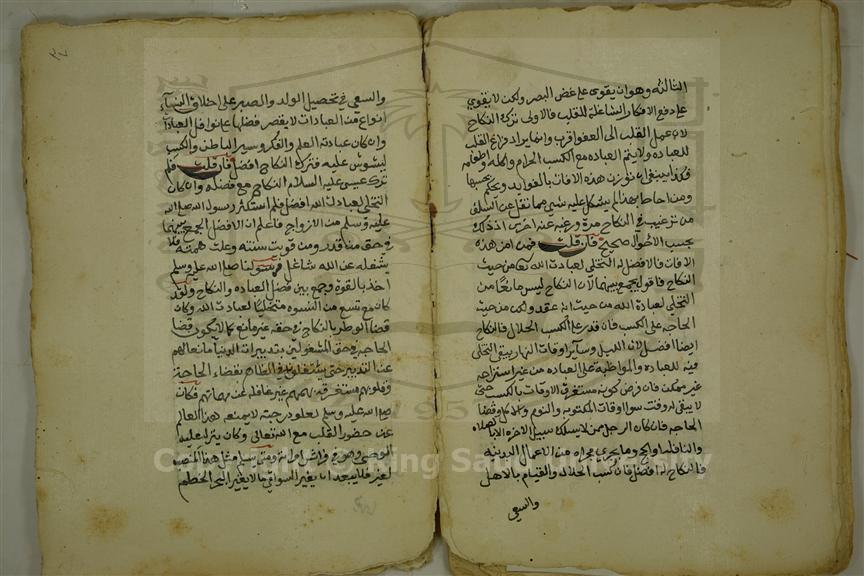 الثالثه وهو ان يقوى على غض البصر ولكن لا يقوى
على دفع الافكار الشاغلة للقلب فالاولى تركه النكاح
لان عمل القلب الى العفو اقرب وانما يراد فراغ القلب
للعباده ولا يتم العباده مع الكسب الحرام واكله واطعامه
فكذا ينبغي ان توزن هذه الافات بالفوايد ويحكم بحسبها
ومن احاط بهذا لم يشكل عليه شيء مما نقل عن السلف
من ترغيب في النكاح مرة ورغبة عنه اخرى اذ ذلك
بحسب الاحوال صحيح فان قلت فمن امن هذه
الافات فما الافضل له التخلي لعبادة الله او
النكاح فاقول يجمع بينهما لان النكاح ليس مانعا من
التخلي لعبادة الله من حيث انه عقد ولكن من حيث
الحاجه على الكسب فان قدر على الكسب الحلال فالنكاح
ايضا افضل لان الليل وساير اوقات النهار يبقى التخلي
فيه للعباده والمواظبة على العباده من غير استراحه
غير ممكن فان فرض كونه مستغرق الاوقات بالكسب حتى
لا يبقى له وقت سوا اوقات المكتوبه والنوم والاكل وقضا
الحاجه فان كان الرجل ممن لا يسلك سبيل الاخره الا بالصلاه
والنافله او الحج وما يجري مجراه من الاعمال البدنيه
فالنكاح له افضل فان كسب الحلال والقيام بالاهل
والسعي
والسعي في تحصيل الولد والصبر على اخلاق النساء
انواع من العبادات لا يقصر فضلها عن نوافل العبادات
وان كان عبادته العلم والفكر وسير الباطن والكسب
يشوش عليه فترك النكاح افضل فان قلت فلم
ترك عيسى عليه السلام النكاح مع فضله وان كان
التخلي لعبادة الله افضل فلم استكثر رسول الله صلى الله
عليه وسلم من الازواج فاعلم ان الافضل الجمع بينهما
في حق من قدر ومن قويت منته وعلت همته فلا
يشغله عن الله شاغل ونبينا صلى الله عليه وسلم
اخذ بالقوة وجمع بين فضل العباده والنكاح ولقد
كان مع تسع من النسوه متخليا لعبادة الله وكان
قضا الوطر بالنكاح في حقه غير مانع كما لا يكون قضا
الحاجه في حق المشغولين بتدبيرات الدنيا مانعا لهم
عن التدبير حتى يشتغلون في الظاهر بقضاء الحاجة
وقلوبهم مستغرقه بهممهم غير غافله عن مهماتهم فكان
صلى الله عليه وسلم لعلو درجته لا يمنعه هذا العالم
عن حضور القلب مع الله تعالى وكان ينزل عليه
الوحي وهو في فراش امراته ومتى يسلم مثل هذا المنصب
لغيره فلا يبعد ان يغير السواقي ما لا يغير البحر الخضم
Copyright © King Saud University
1957